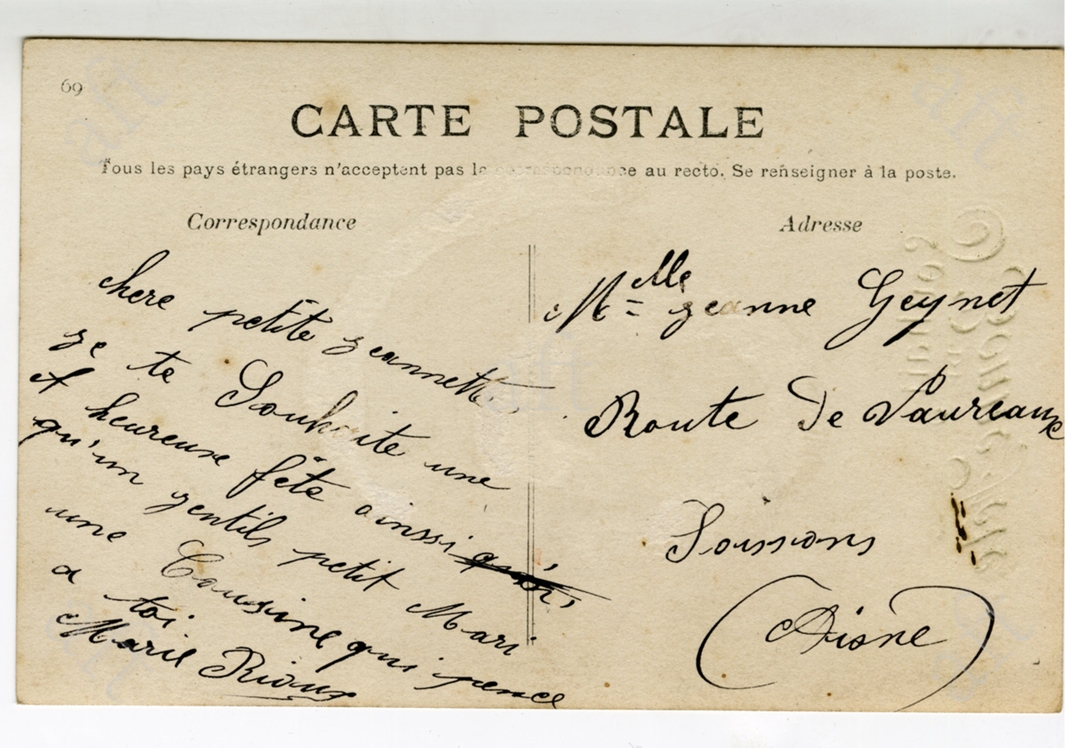 69
CARTE POSTALE
Tous les pays étrangers n'acceptent pas la correspondance au recto. Se renseigner à la poste.
Correspondance
chere petite jeannette
je te Souhaite une
et heureuse fête ainssi
qu'un gentils petit Mari
une Cousine qui pence
a toi
Marie Rioux
Adresse
Melle jeanne Geynet
Route De Vaureaux
Soissons
(Aisne)